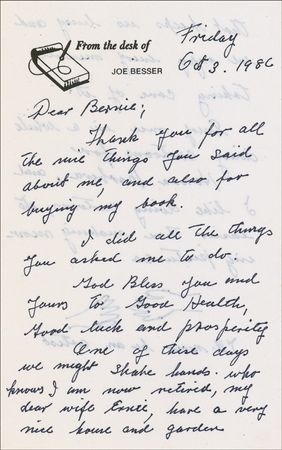 From the desk of
JOE BESSER
Friday
Oct 3. 1986
Dear Bernie;
Thank you for all
the nice things you said
about me, and also for
buying my book.
I did all the things
you asked me to do.
God Bless you and
yours to Good Health,
Good luck and prosperity
One of these days
we might shake hands. who
knows I am now retired, my
dear wife Ernie, have a very
nice house and garden